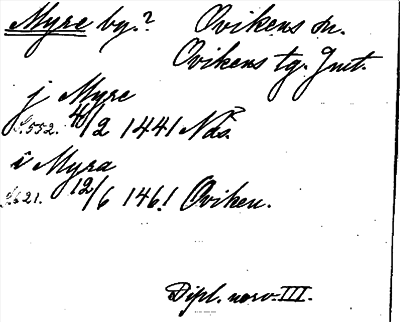 Myre by.? Ovikens sn.
Ovikens tg. Jmt.
j Myre
S.552. 4/2 1441 Näs.
i Myra
S.621. 12/6 1461 Oviken.
Dipl. norv. III.